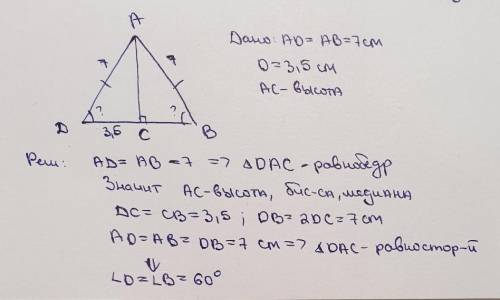 A
7
7
?
?
D
3,5
C
B
Дано: AD = AB = 7 см
D = 3,5 см
AC - высота
Реш: AD = AB = 7 => △DAC - равнобедр
Значит AC - высота, бис-са, медиана
DC = CB = 3,5 ; DB = 2DC = 7 см
AD = AB = DB = 7 см => △DAC - равностор-й
⇓
∠D = ∠B = 60°